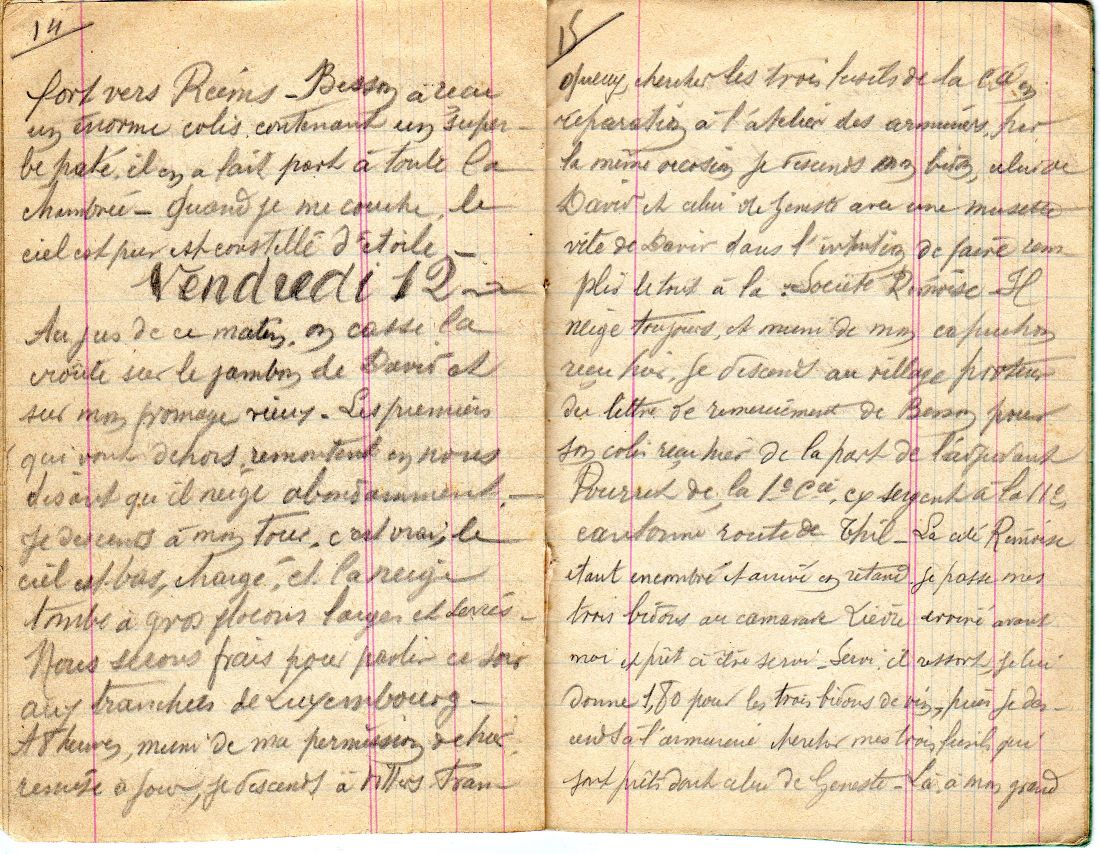 14
fort vers Reims - Besson a recu
un énorme colis contenant un super-
be paté. il en a fait part à toute la
chambrée - Quand je me couche, le
ciel est pur et constellé d'étoile
Vendredi 12 -
Au jus de ce matin, on casse la
croûte sur le jambon de David et
sur mon fromage vieux - Les premiers
qui vont dehors, remontent en nous
disant qu'il neige abondamment. -
Je descends à mon tour, c'est vrai, le
ciel est bas, chargé, et la neige
tombe à gros flocons larges et serrés -
Nous serons frais pour partir ce soir
aux tranchées de Luxembourg -
A 8 heures, muni de ma permission de hier,
remise à jour, je descends à Villers Fran
15
queux, chercher les trois fusils de la Cie en
réparation à l'atelier des armuriers, par
la même occasion je descends mon bidon, celui de
David et celui de Geneste avec une musette
vide de David dans l'intention de faire rem-
plir le tout à la Société Rémoise - Il
neige toujours, et muni de mon capuchon
reçu hier, je descends au village porteur
du lettre de remerciement de Besson pour
son colis reçu hier de la part de l'adjudant
Pourret de la 1e Cie, ex sergent à la 11e,
cantonné route de Thil - La côté Rémoise
étant encombré et arrivé en retard, je passe mes
trois bidons au camarade Lièvre arrivé avant
moi et prêt à être servi - Servi, il ressort, je lui
donne 1,80 pour les trois bidons de vin, puis je des-
cends à l'armurerie chercher mes trois fusils qui
sont prêts dont celui de Geneste - Là, à mon grand